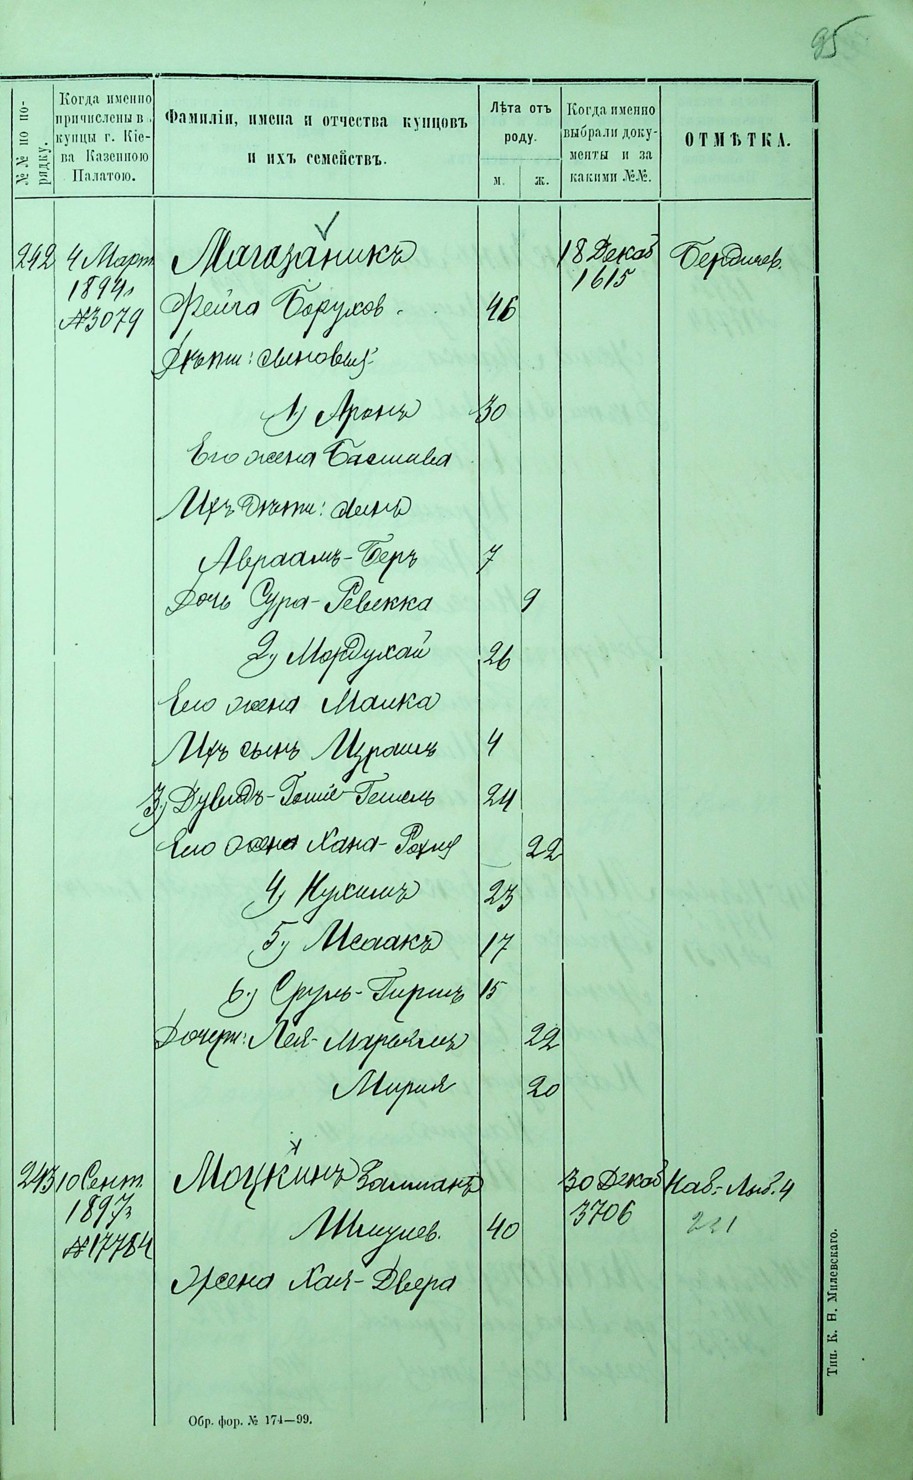 95
№№ по по-
рядку.
Когда именно
причислены в
купцы г. Кіе-
ва Казенною
Палатою.
Фамиліи, имена и отчества купцовъ
и ихъ семействъ.
Лѣта отъ
роду.
м.
ж.
Когда именно
выбрали доку-
менты и за
какими №№.
ОТМѢТКА.
242 4 Март. Магазаникъ 18 Декаб Бердичев.
1894 1615
№3079 Фейга Борухов. 46
Дѣти: сыновья
1) Аронъ 30
Его жена Басшива
Ихъ дѣти: сынъ
Авраамъ-Беръ 7
Дочь Сура-Ревекка 9
2) Мордухай 26
Его жена Малка
Ихъ сынъ Израиль 4
3) Дувидъ- 24
Его жена Хана-Рохля 22
4) Нухимъ 23
5) Исаакъ 17
6) Сруль-Гершъ 15
Дочери: Лея-Марьямъ 22
Мирля 20
243 10 Сент. Моцкинъ Залманъ 30 Декаб
1897 3706
№17784 Шмулев. 40 221
Жена Хая-Двера
Обр. фор. № 174—99.
Тип. К. Н. Милевскаго.